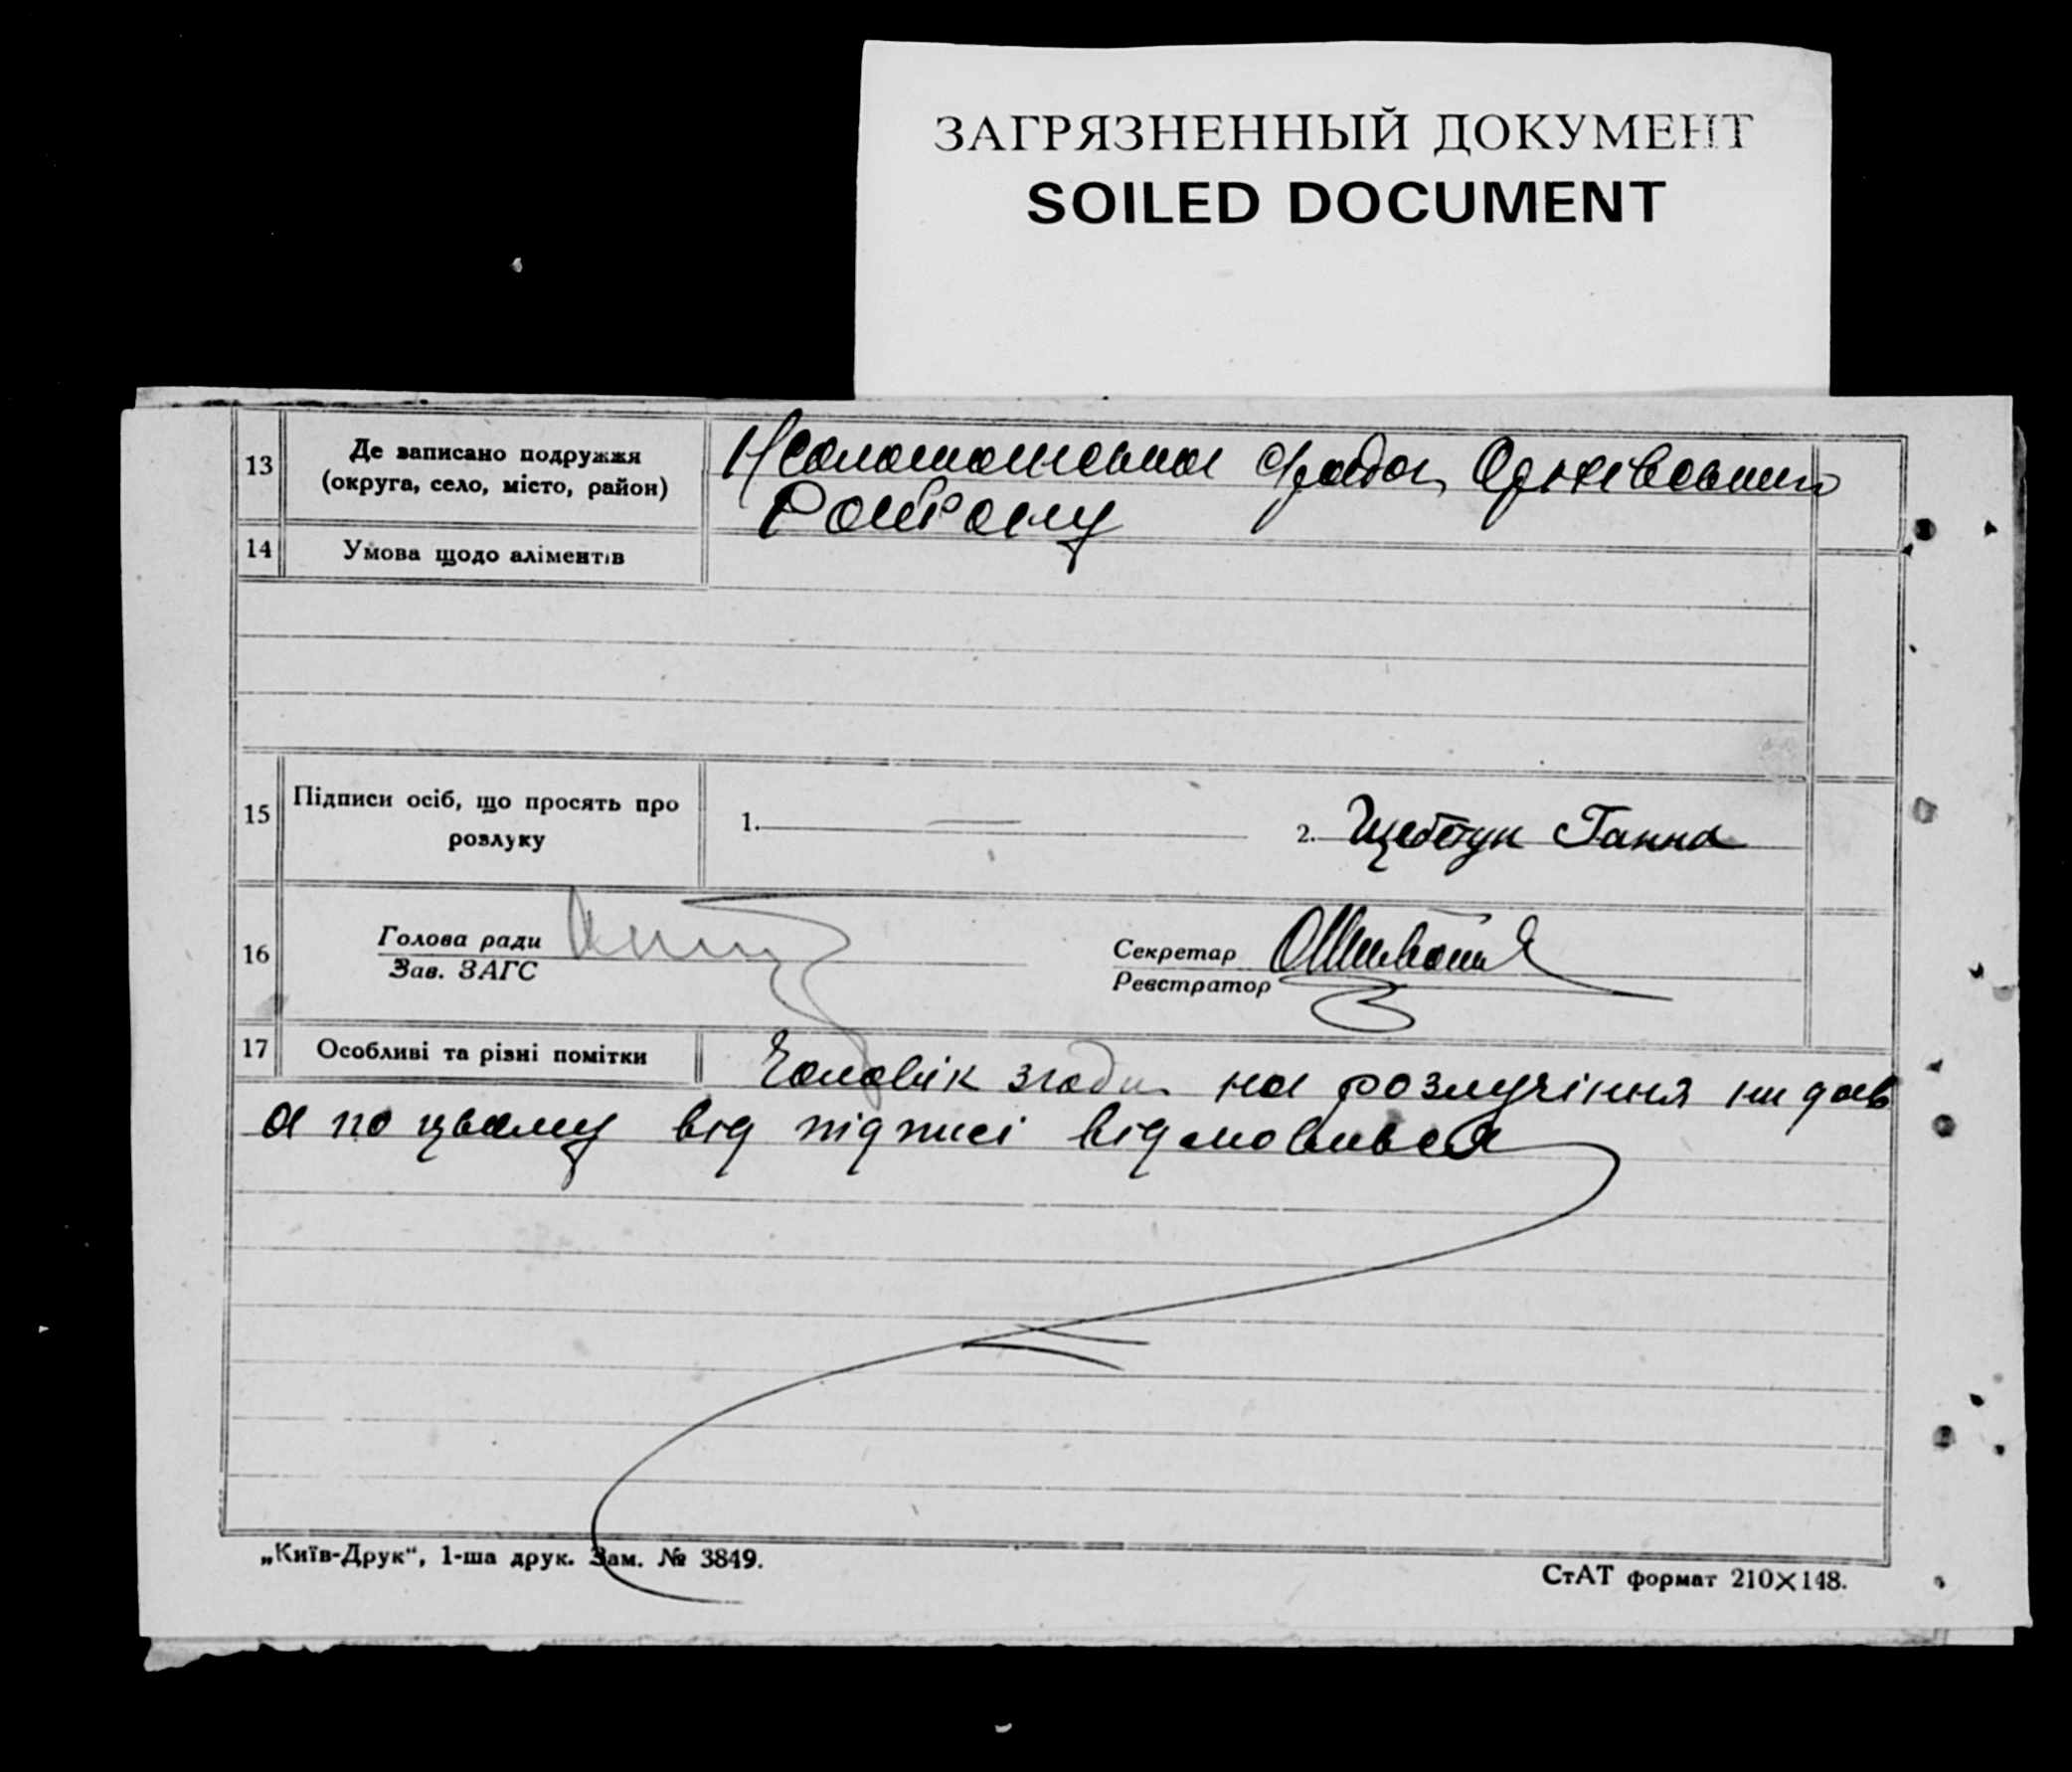 ЗАГРЯЗНЕННЫЙ ДОКУМЕНТ
SOILED DOCUMENT
13 Де записано подружжя
(округа, село, місто, район)
Району
14 Умова щодо аліментів
15 Підписи осіб, що просять про
розлуку
1. — 2. Щебетун Ганна
16 Голова ради
Зав. ЗАГС
Секретар
Реєстратор
17 Особливі та різні помітки Чоловік згоди на розлучіння ни дав
а по цьому від підписі відмовився
„Київ-Друк“, 1-ша друк. Зам. № 3849.
СтАТ формат 210×148.